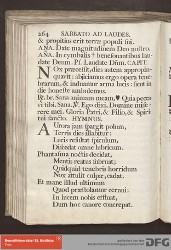 264 SABBATO AD LAUDES.
& propitius erit terræ populi sui.
ANA. Date magnitudinem Deo nostro.
ANA. In cymbalis benesonantibus lau-
date Deum. Ps. Laudate Dñm. CAPIT.
NOx præcessit, dies autem appropin-
quavit: abjiciamus ergo opera tene-
brarum, & induamur arma lucis: sicut in
die honeste ambulemus.
Sana animam meam, Quia pecca-
vi tibi. Sana. Ego dixi, Domine mise-
rere mei. Gloria Patri, & Filio, & Spiri-
tui sancto. HYMNUS.
AUrora jam spargit polum,
Terris dies illabitur:
Lucis resultat spiculum,
Discedat omne lubricum.
Phantasma noctis decidat,
Mentis reatus subruat;
Quidquid tenebris horridum
Nox attulit culpæ, cadat.
Et mane illud ultimum
Quod præstolamur cernui:
In lucem nobis effluat,
Dum hoc canore concrepat.
DFG